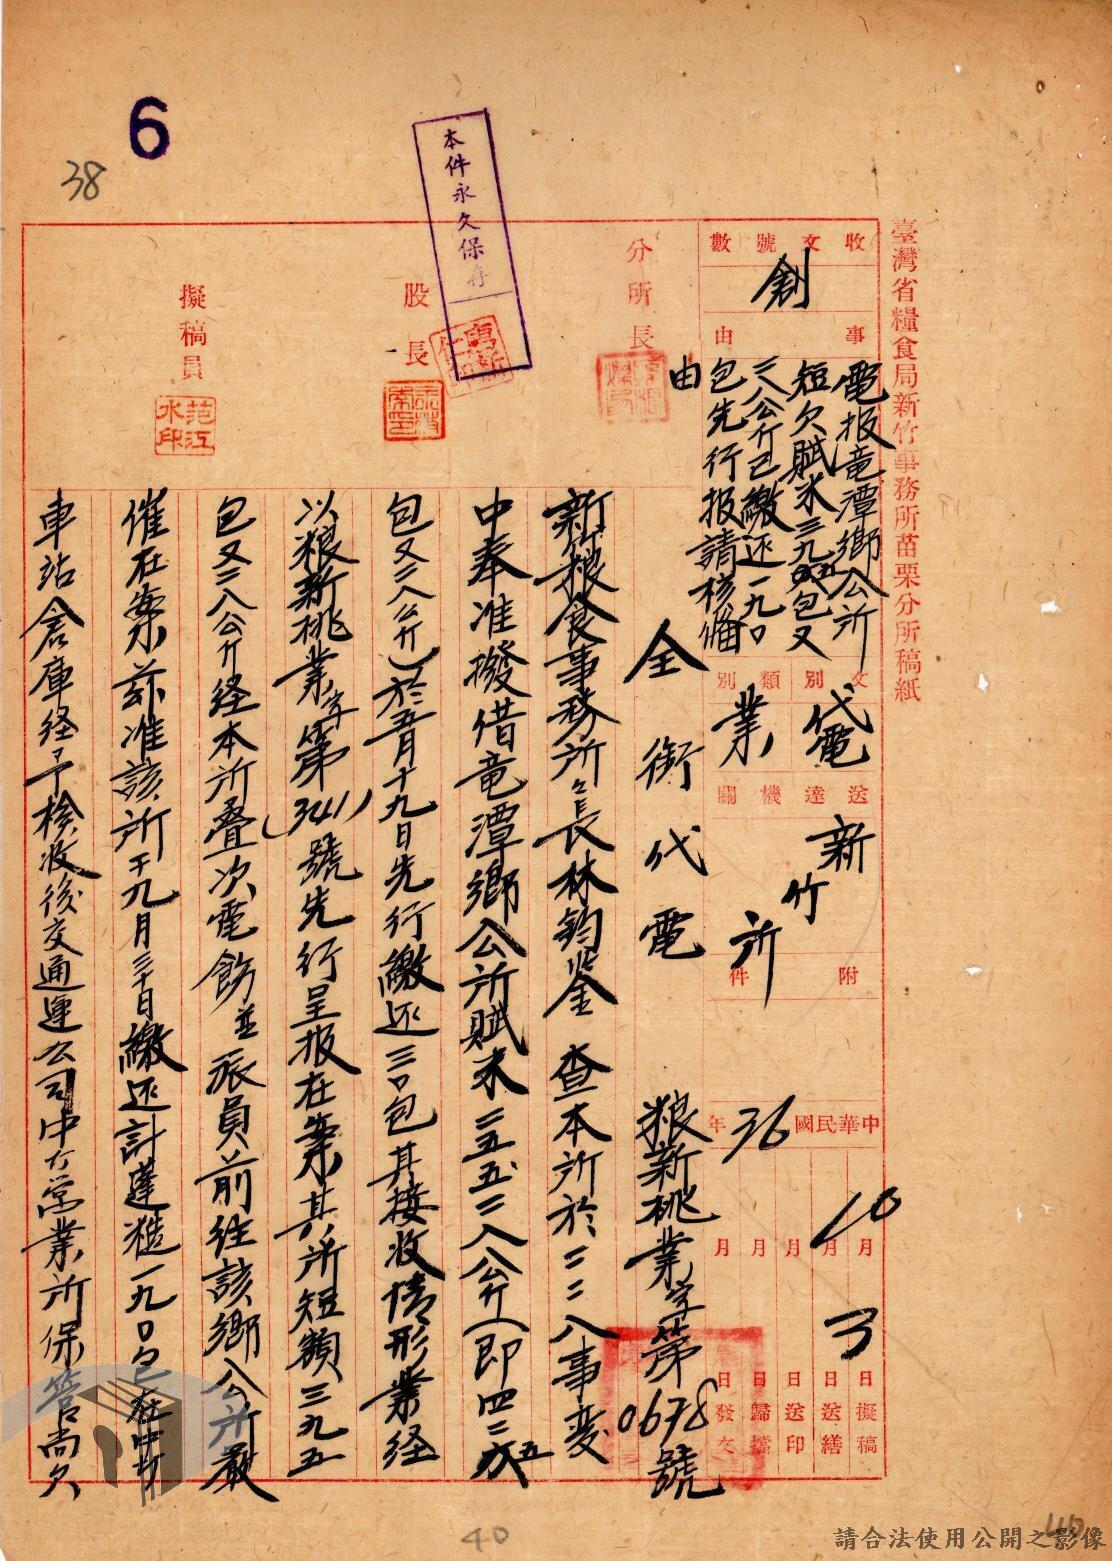 6
38
本件永久保存
臺灣省糧食局新竹事務所苗栗分所稿紙
收文號數
創
事由
電報竜潭鄉公所
短欠賦米三九五包又
二八公斤已繳还一九〇
包先行报請核備
由
分所長
股長
擬稿員
范江水印
文別
代電
類別
業
送達機關
新竹所
附件
中華民國36年
10月3日擬稿
月日送繕
月日送印
月日歸檔
月日發文
粮新桃業字第0678號
全銜代電
新竹粮食事務所々長林鈞鉴 查本所於二二八事变
中奉准撥借竜潭鄉公所賦米二五五二八公斤(即四二五
包又二八公斤)於五月十九日先行繳还三〇包其接收情形業经
以粮新桃業字第(341)號先行呈报在案其所短額三九五
包又二八公斤经本所叠次電飭並派員前往該鄉公所嚴
催在案茲准該所于九月三十日繳还計蓬糙一九〇包在中坜
車站倉庫経予檢收後交通運公司中力营業所保管尚欠
40
請合法使用公開之影像